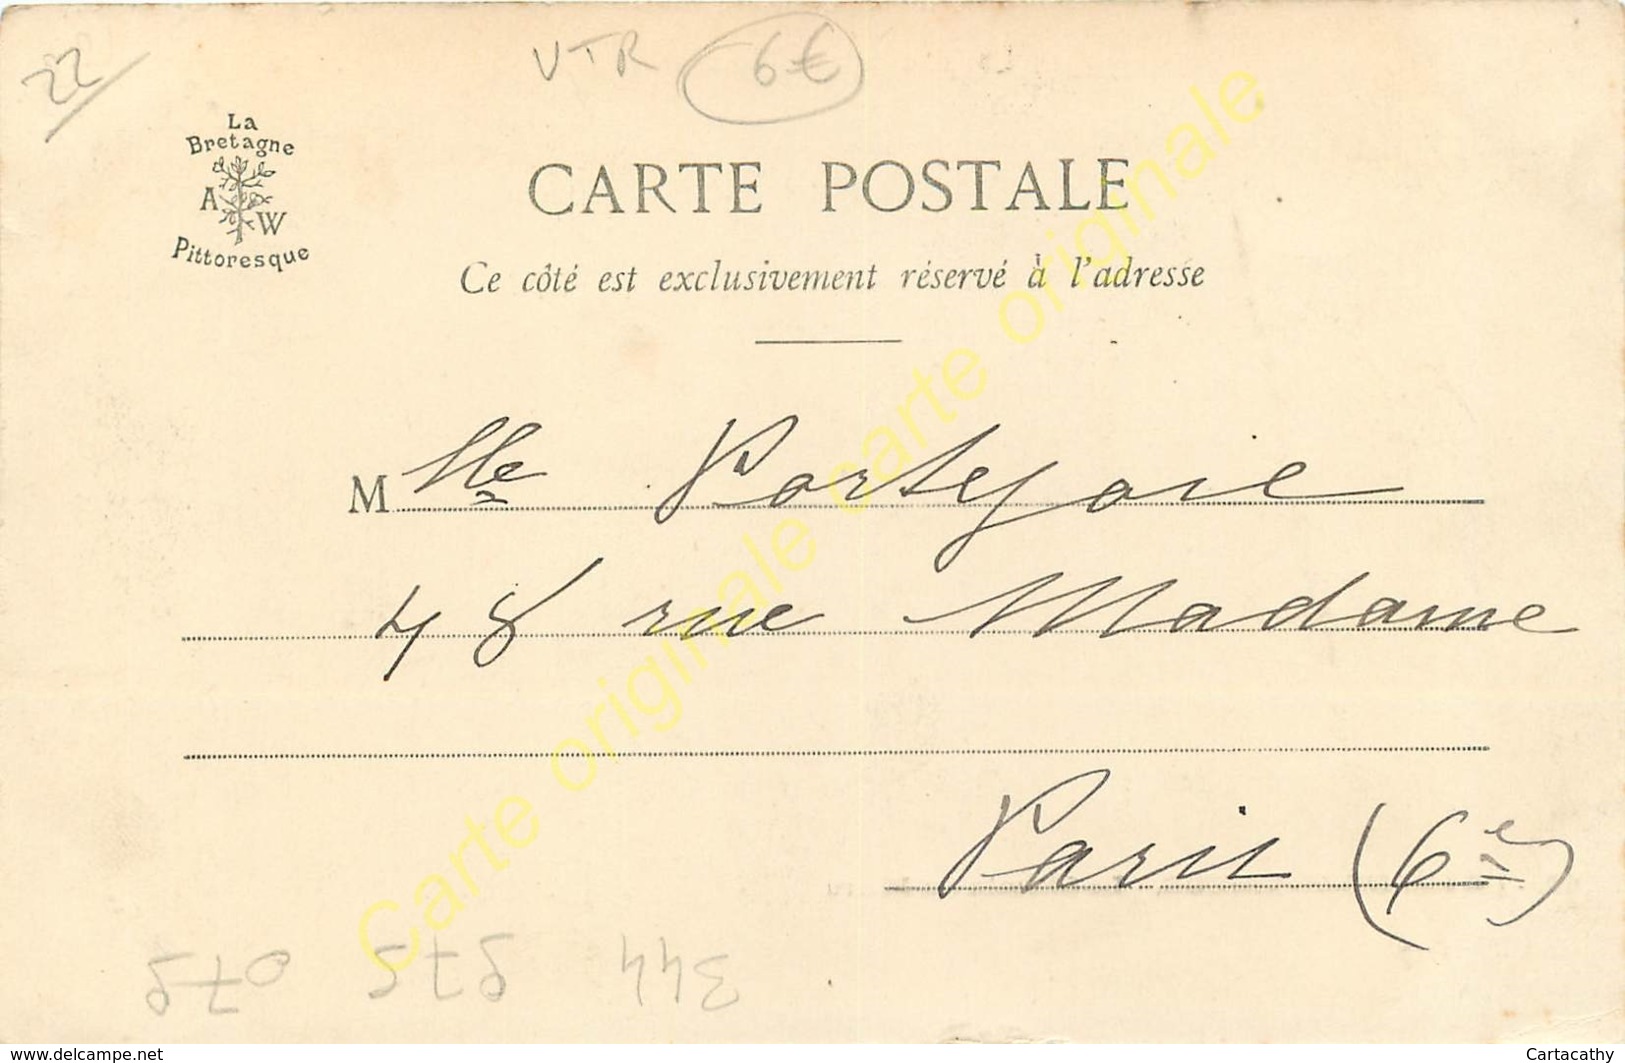 22
VTR 6€
La
Bretagne
A W
Pittoresque
CARTE POSTALE
Ce côté est exclusivement réservé à l'adresse
Mlle Portejoie
48 rue Madame
Paris (6e)
344 575 072
Carte originale carte originale
www.delcampe.net
Cartacathy